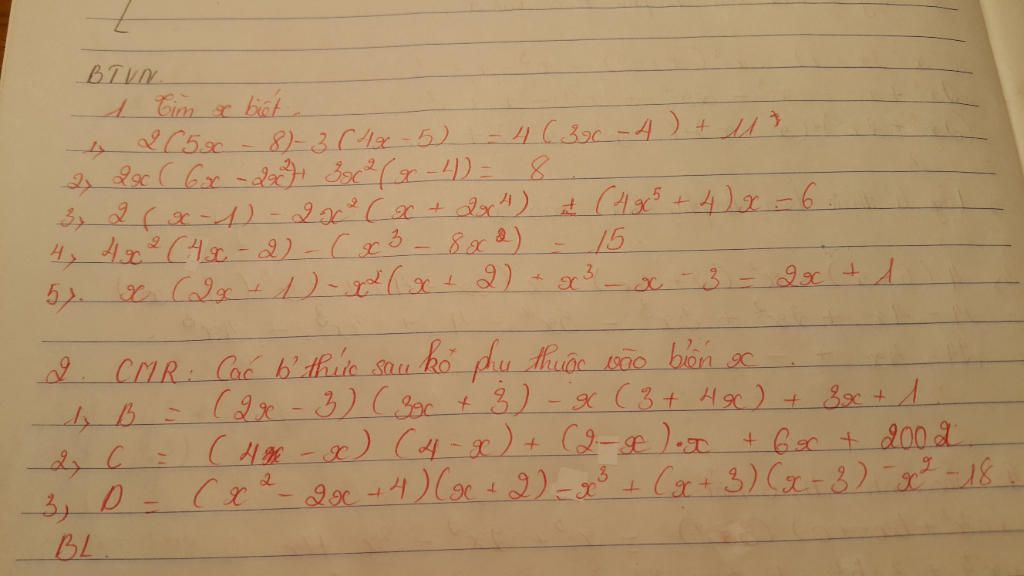 BTVN.
1 Tìm x biết.
1, 2(5x - 8) - 3(4x - 5) = 4(3x - 4) + 11
2, 2x(6x - 2x²) + 3x²(x - 4) = 8
3, 2(x - 1) - 2x²(x + 2x⁴) + (4x⁵ + 4)x = 6
4, 4x²(4x - 2) - (x³ - 8x²) = 15
5). x(2x + 1) - x²(x + 2) + x³ - x - 3 = 2x + 1
2. CMR: Các b' thức sau kô phụ thuộc vào biến x
1, B = (2x - 3)(3x + 3) - x(3 + 4x) + 3x + 1
2, C = (4x - x)(4 - x) + (2 - x).x + 6x + 2002
3, D = (x² - 2x + 4)(x + 2) - x³ + (x + 3)(x - 3) - x² - 18.
BL.